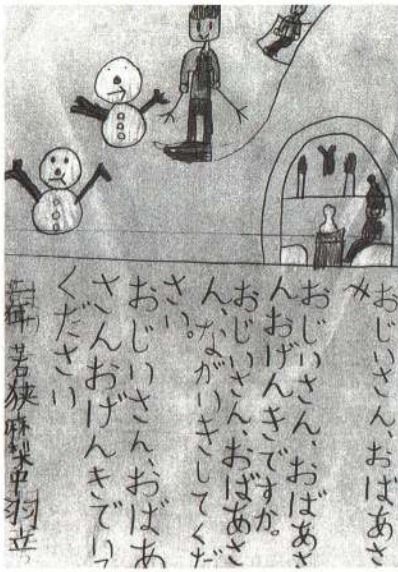 おじいさん、おばあさ
おじいさん、おばあさ
んおげんきですか。
おじいさん、おばあさ
ん、ながいきしてくだ
さい。
おじいさん、おばあ
さんおげんきでいて
ください
若狭 羽立